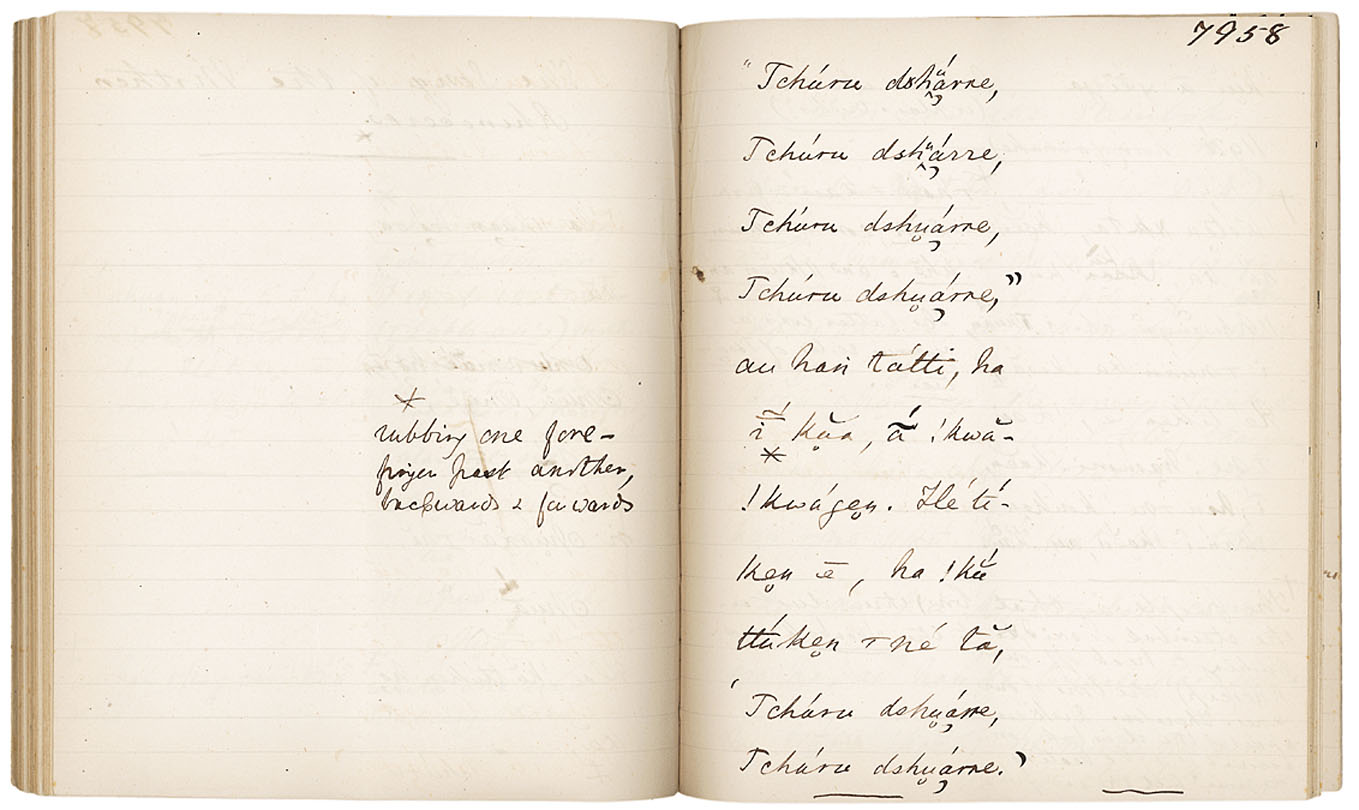 rubbing one fore-
finger past another,
backwards & forwards
7958
"Tcháru dshu̯árre,
Tcháru dshu̯árre,
Tcháru dshu̯árre,
Tcháru dshu̯árre,"
au haṅ tátti, ha
kṵ̆a, á !kwă-
!kwágen̯. Hé tí-
ken̯ ē, ha !kṵ̆
ttúken̯ né tă,
'Tcháru dshu̯árre,
Tcháru dshu̯árre.'